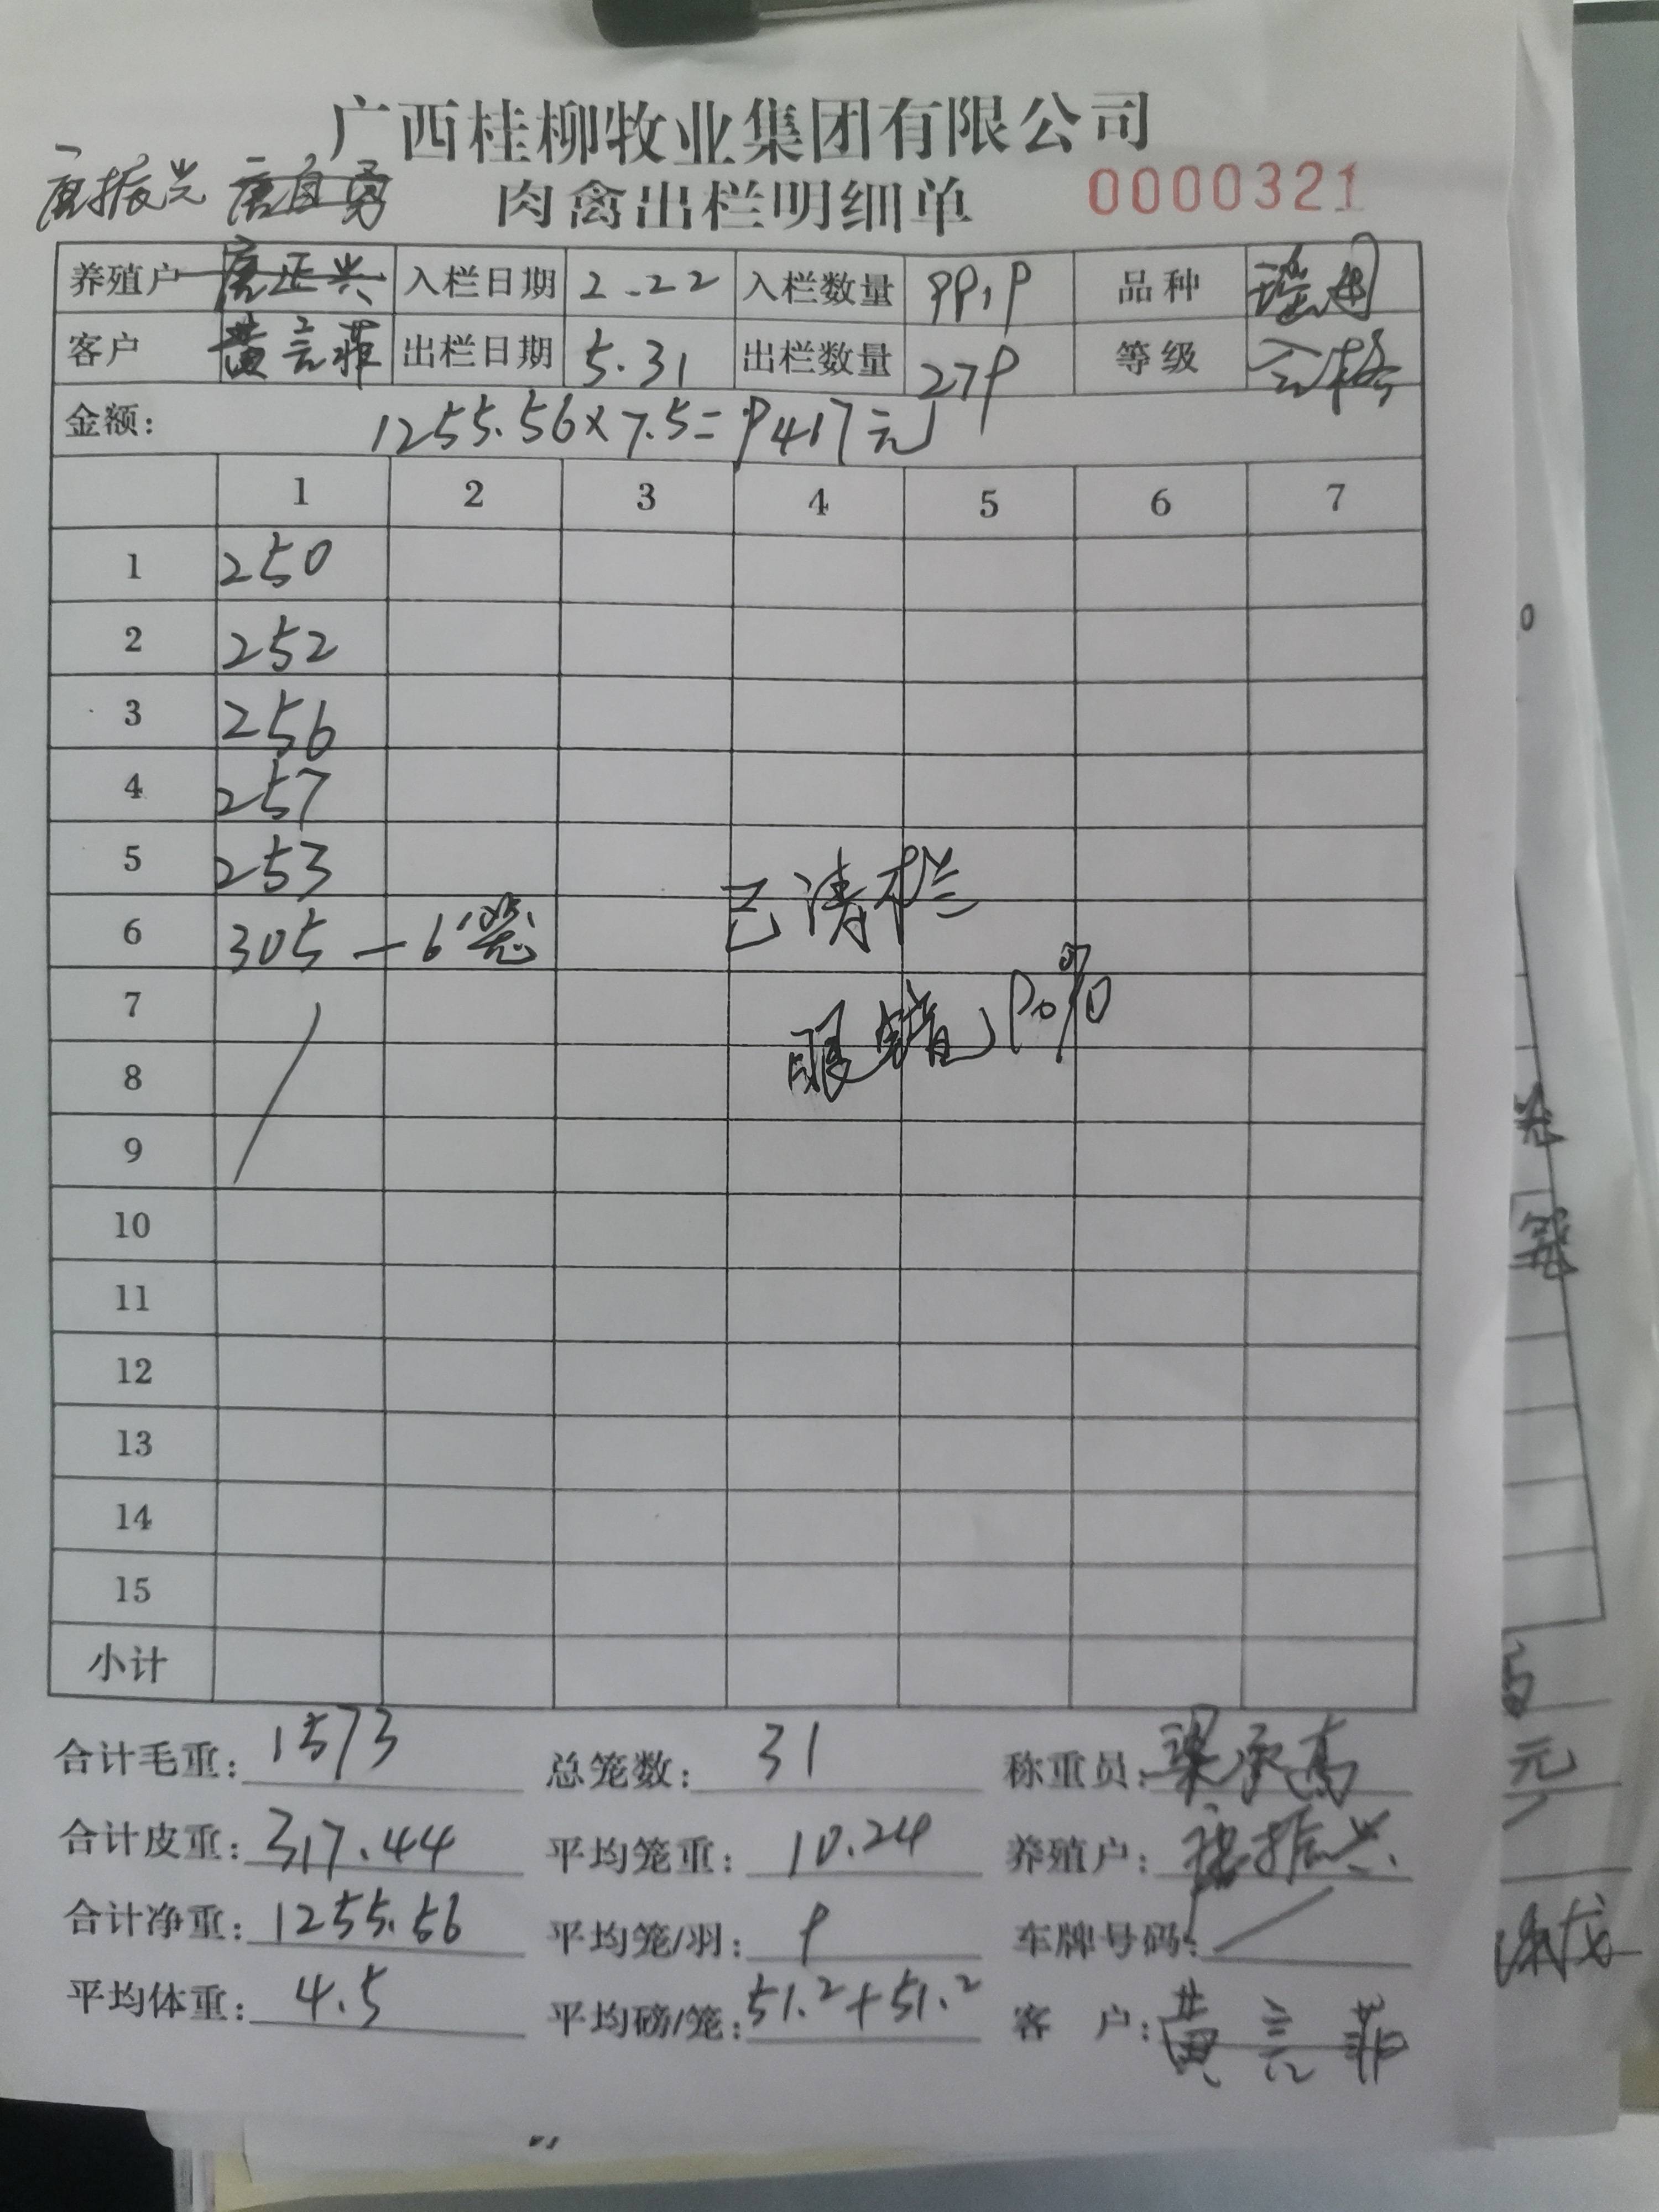 广西桂柳牧业集团有限公司
唐振兴 唐自勇 肉禽出栏明细单 0000321
养殖户 唐正兴 入栏日期 2.22 入栏数量 9919 品种
客户 黄言菲 出栏日期 5.31 出栏数量 279 等级 合格
金额: 1255.56×7.5=9417元
1 2 3 4 5 6 7
1 250
2 252
3 256
4 257
5 253 已清栏
6 305 — 6笼
7 90%
8
9
10
11
12
13
14
15
小计
合计毛重: 1573 总笼数: 31 称重员: 梁承高
合计皮重: 317.44 平均笼重: 10.24 养殖户: 唐振兴
合计净重: 1255.56 平均笼/羽: 9 车牌号码: /
平均体重: 4.5 平均磅/笼: 51.2+51.2 客 户: 黄言菲
元